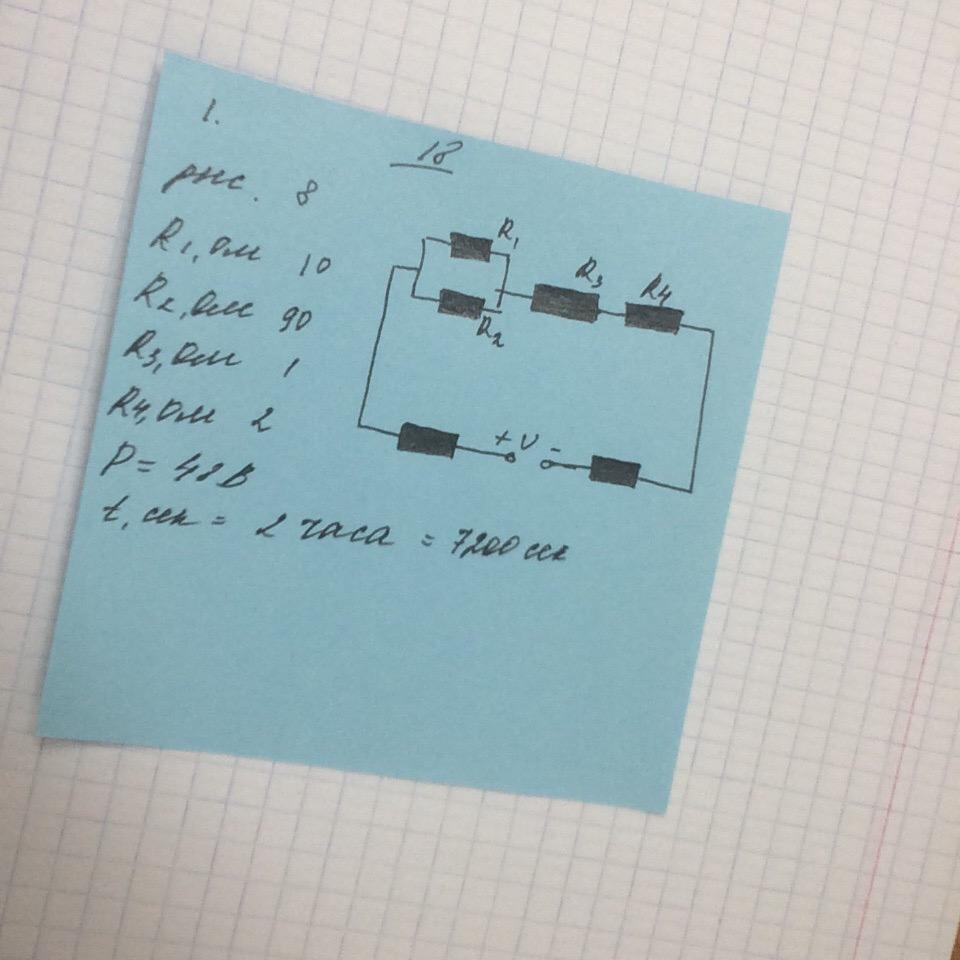 1.
18
рис. 8
R1, Ом 10
R2, Ом 90
R3, Ом 1
R4, Ом 2
P = 48В
t, сек = 2 часа = 7200 сек
R1
R2
R3
R4
+ U -